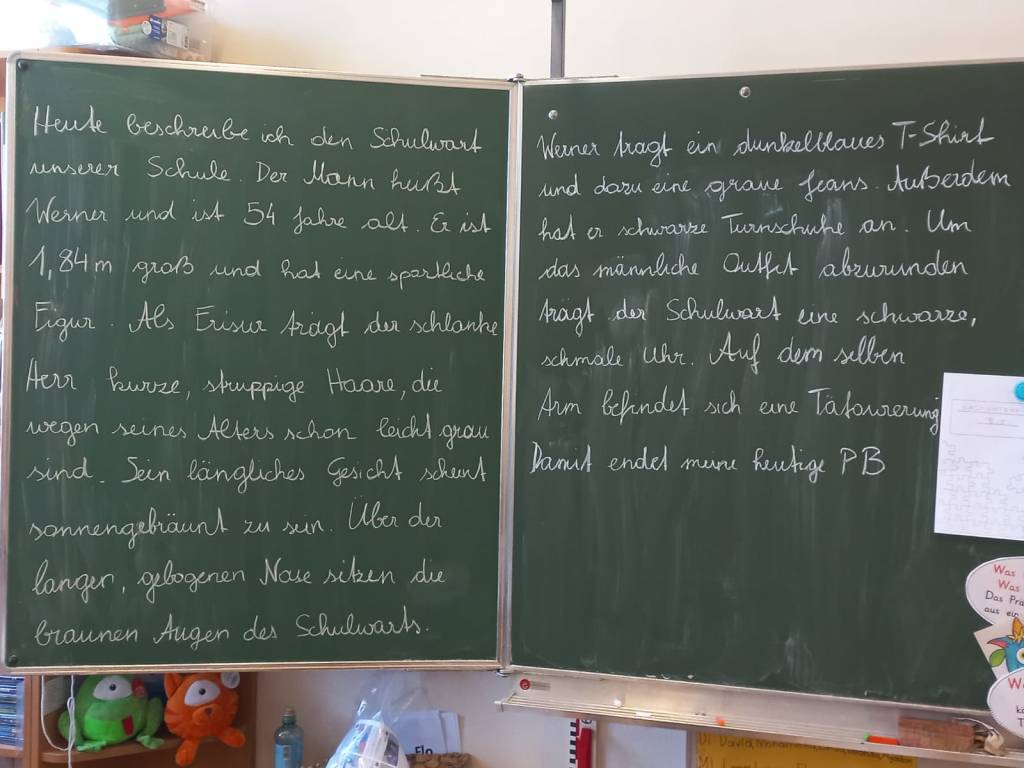 Heute beschreibe ich den Schulwart
unserer Schule. Der Mann heißt
Werner und ist 54 Jahre alt. Er ist
1,84m groß und hat eine sportliche
Figur. Als Frisur trägt der schlanke
Herr kurze, struppige Haare, die
wegen seines Alters schon leicht grau
sind. Sein längliches Gesicht scheint
sonnengebräunt zu sein. Über der
langen, gebogenen Nase sitzen die
braunen Augen des Schulwarts.
Werner tragt ein dunkelblaues T-Shirt
und dazu eine graue Jeans. Außerdem
hat er schwarze Turnschuhe an. Um
das männliche Outfit abzurunden
trägt der Schulwart eine schwarze,
schmale Uhr. Auf dem selben
Arm befindet sich eine Tätowierung
Damit endet meine heutige PB
Was
Was
Das Prä
aus ein
W
Flo